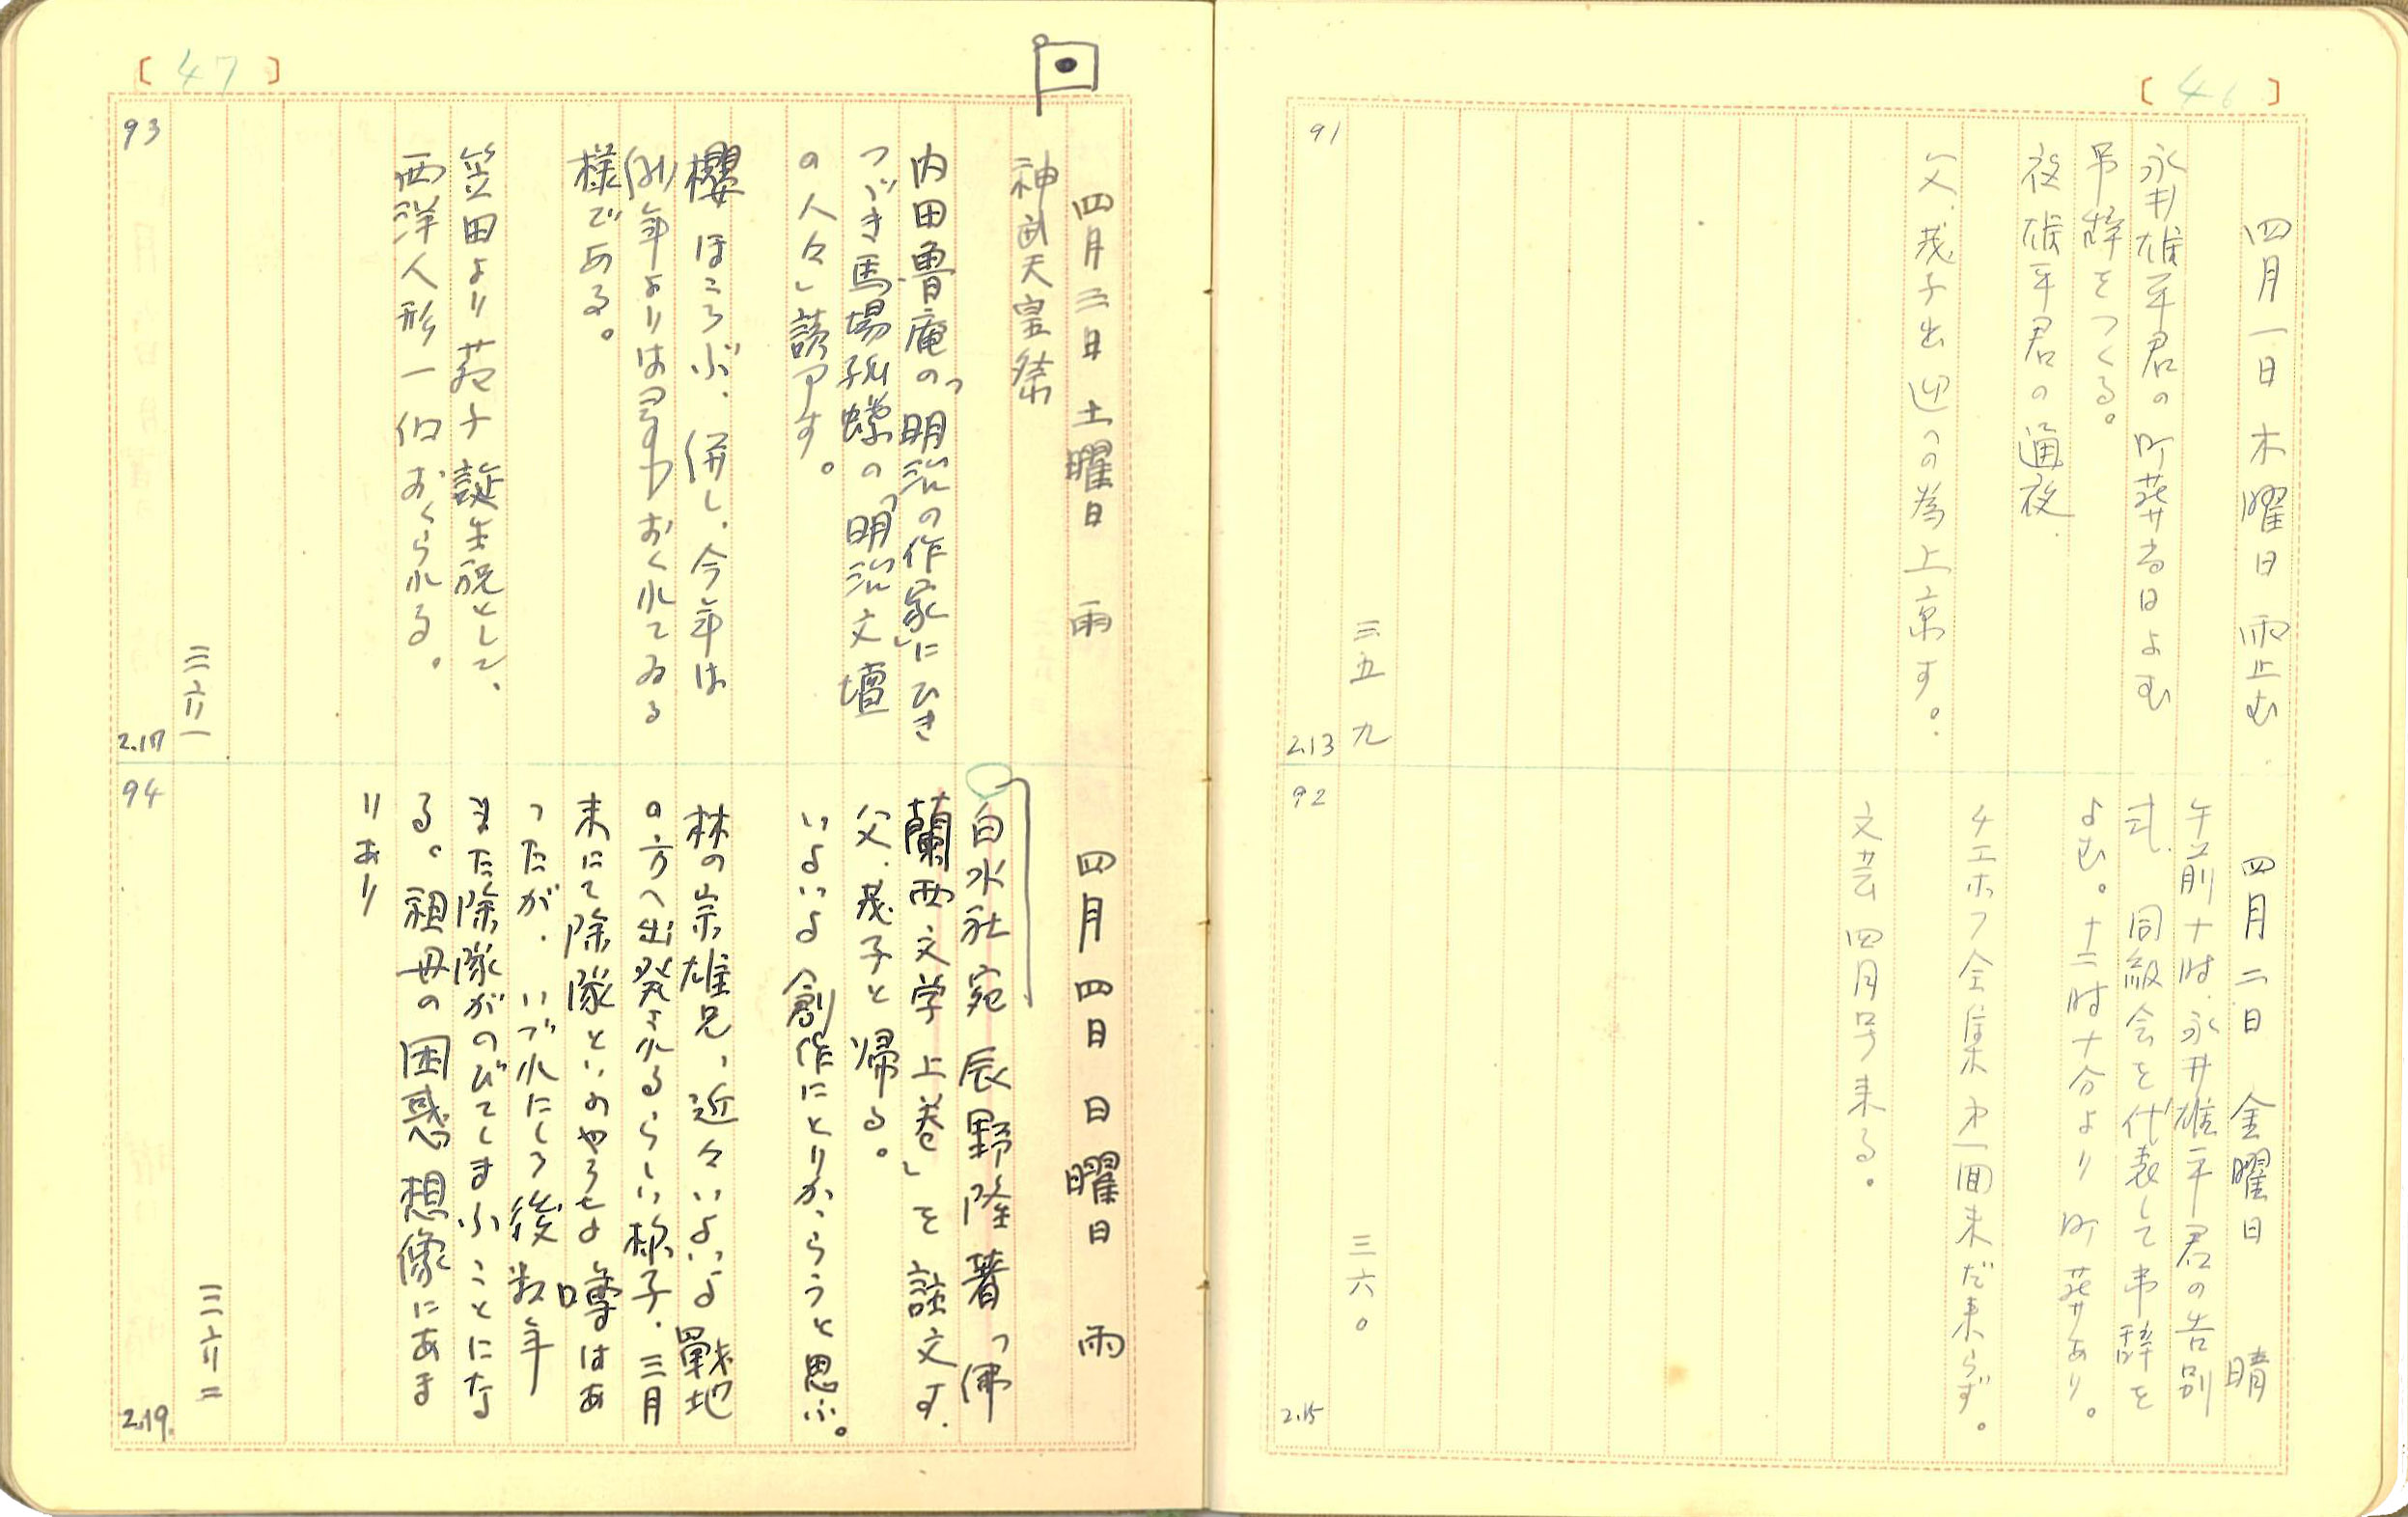 [46]
四月一日 木曜日 雨止む
永井雄平君の町葬当日よむ
弔辞をつくる。
夜雄平君の通夜
父、茂子出迎への為上京す。
三五九
91
2.13
四月二日 金曜日 晴
午前十時、永井雄平君の告別
式、同級会を代表して弔辞を
よむ。十二時十分より町葬あり。
チエホフ全集 第一回未だ来らず。
文芸 四月号来る。
三六〇
92
2.15
[47]
四月三日 土曜日 雨
神武天皇祭
内田魯庵の「明治の作家」にひき
つゞき馬場孤蝶の「明治文壇
の人々」読了す。
櫻ほころぶ、併し、今年は
例年よりは
おくれてゐる
様である。
笠田より
子誕生祝として、
西洋人形一個おくられる。
三六一
93
2.17
四月四日 日曜日 雨
白水社宛 辰野隆著「佛
蘭西文学 上巻」を註文す、
父、茂子と帰る。
いよいよ創作にとりかゝらうと思ふ。
林の宗雄兄、近々いよいよ戰地
の方へ出発されるらしい様子、三月
末にて除隊といふやうな噂はあ
つたが、いづれにしろ後数年
また除隊がのびてしまふことにな
る。祖母の困惑想像にあま
りあり
三六二
94
2.19.